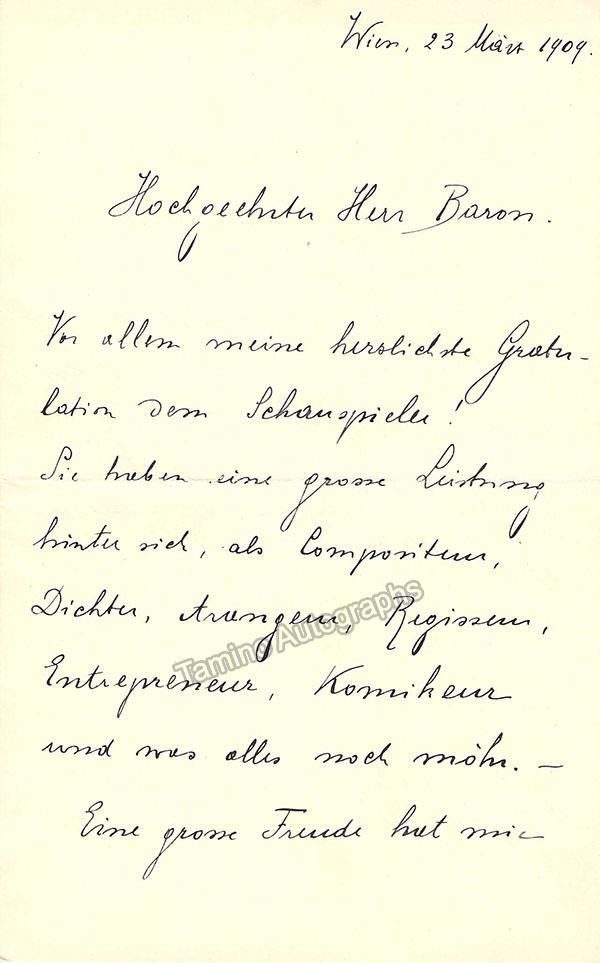 Wien, 23 März 1909.
Hochgeehrter Herr Baron.
Vor allem meine herzlichste Gratu-
lation dem Schauspieler!
Sie haben eine grosse Leistung
hinter sich, als Compositeur,
Dichter, Arangeur, Regisseur,
Taminο Autographs
Entrepreneur, Komikeur
und was alles noch möhr. —
Eine grosse Freude hat mir